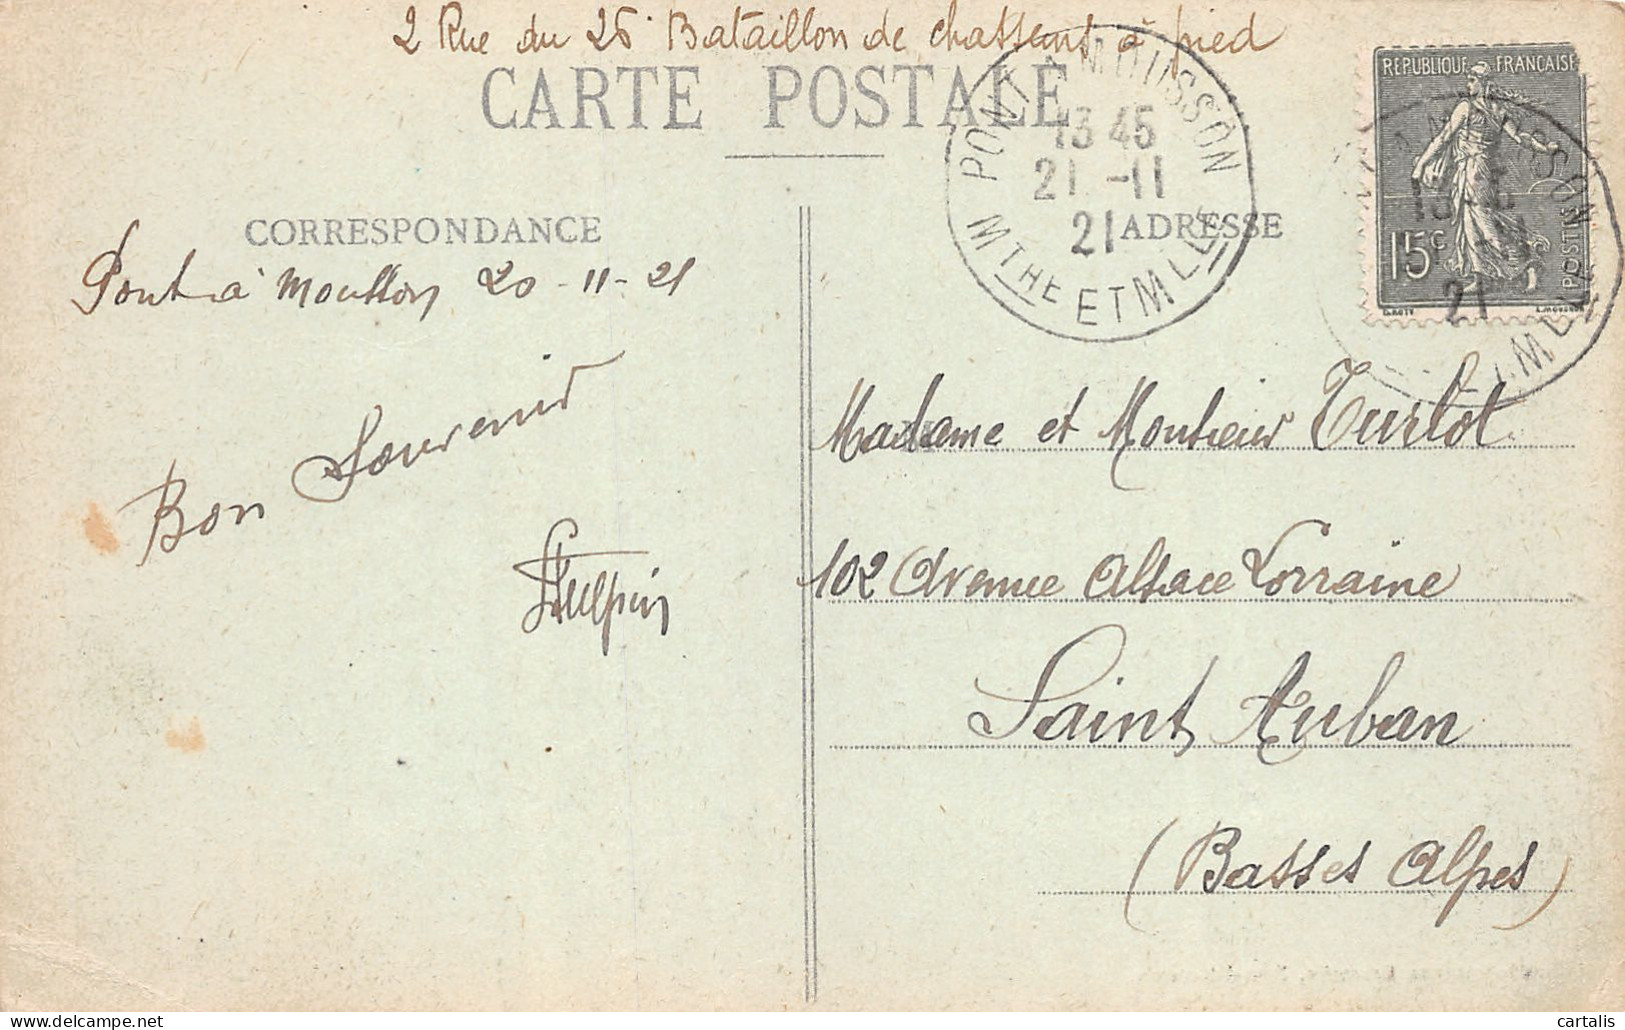 2 Rue du 26 Bataillon de chasseurs à pied
CARTE POSTALE
RÉPUBLIQUE FRANÇAISE
15c
POSTES
PONT À MOUSSON
13 45
21 -11
21
MTHE ET MLLE
CORRESPONDANCE
ADRESSE
Pont à Mousson 20-11-21
Bon Souvenir
Madame et Monsieur Turlot
102 Avenue Alsace Lorraine
Saint Auban
(Basses Alpes)